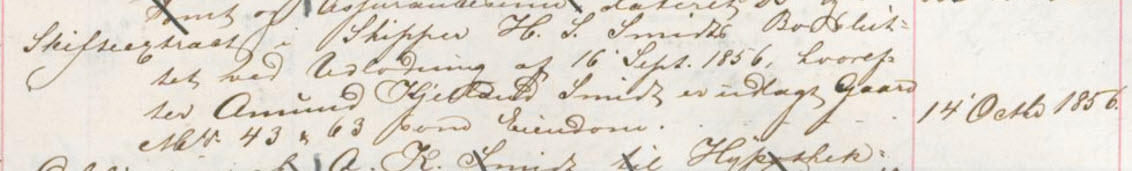 Amt og Assurancesum dateret
Skifteextract i Skipper H. S. Smidts Bo slut-
tet ved Udlodning af 16 Sept. 1856, hvoref-
ter Amund Kjelland Smidt er udlagt Gaard
MNr. 43 & 63 som Eiendom.
14 Octbr 1856.
A. K. Smidt til Hypothek-